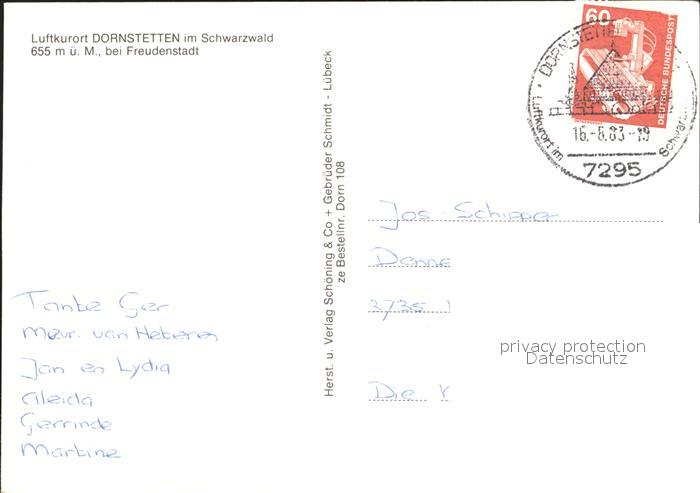 Luftkurort DORNSTETTEN im Schwarzwald
655 m ü. M., bei Freudenstadt
60
DEUTSCHE BUNDESPOST
DORNSTETTEN
Luftkurort im
16.-6.83-19
7295
Herst. u. Verlag Schöning & Co + Gebrüder Schmidt - Lübeck
ze Bestellnr. Dorn 108
Jos Schipper
Denne
3735
privacy protection
Datenschutz
Die
Tante Ger
Mevr. van Heteren
Jan en Lydia
Aleida
Gerrinde
Martine